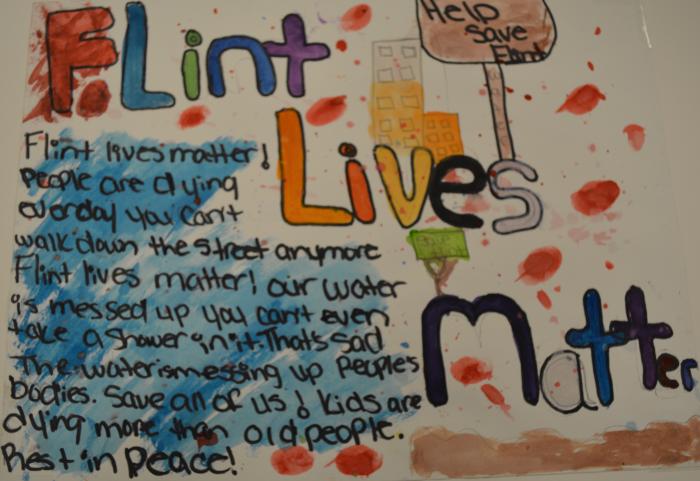 Flint
Help
Save
Flint
Lives
Matter
Flint lives matter!
People are dying
everday you can't
walk down the street anymore
Flint lives matter! our water
is messed up you can't even
take a shower in it. That's sad
The water is messing up people's
bodies. Save all of us! Kids are
dying more than old people.
Rest in Peace!